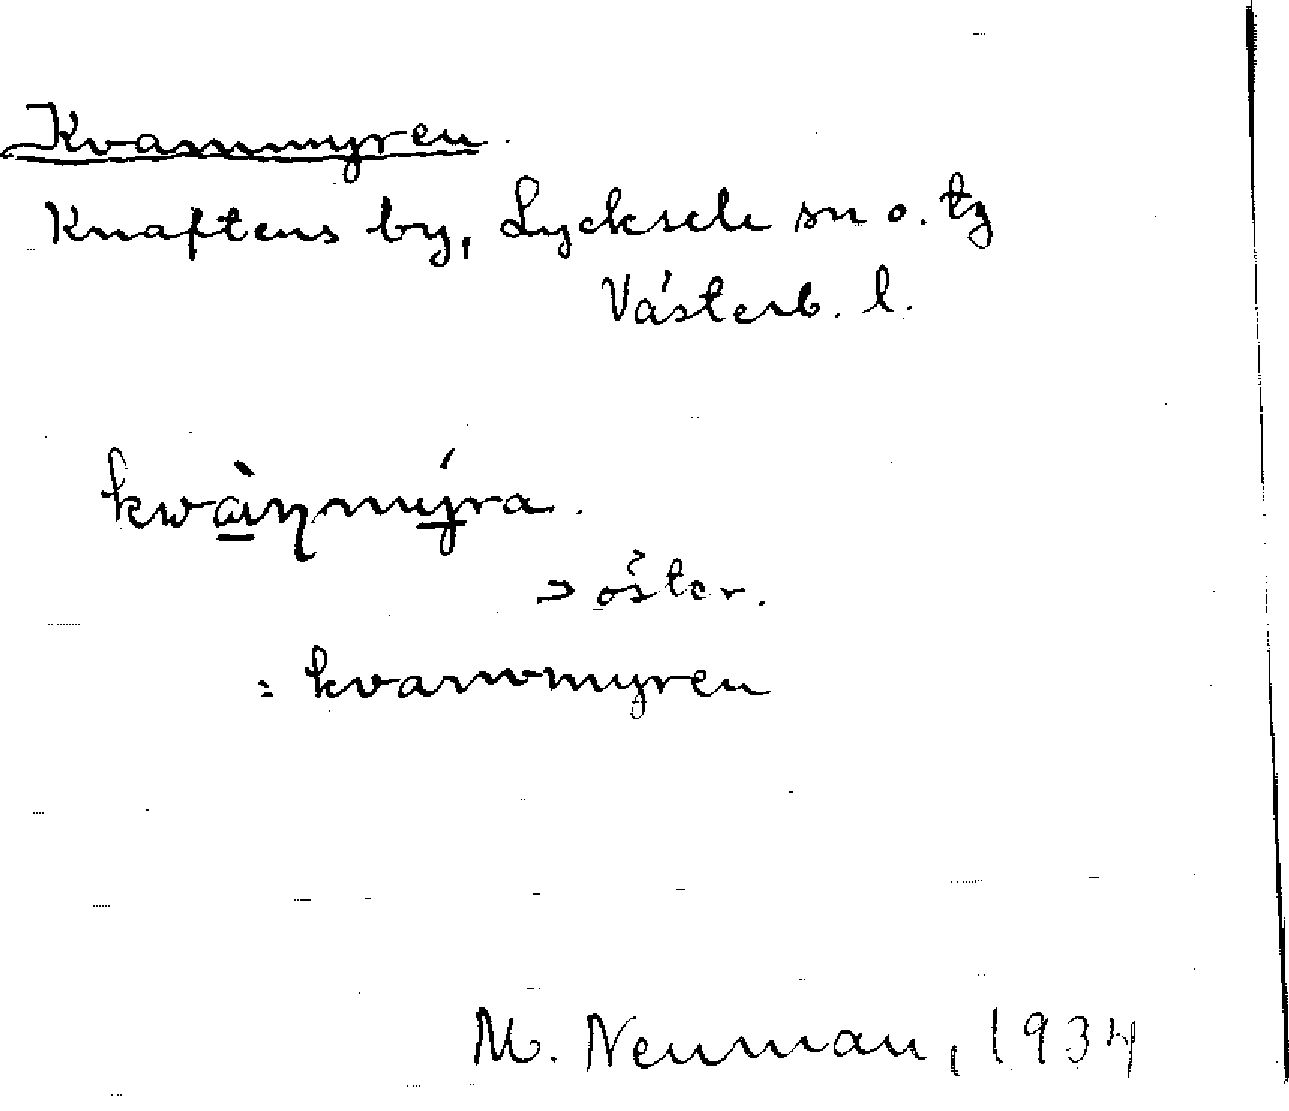 Kvarnmyren.
Knaftens by, Lycksele sn o. tg
Västerb. l.
kwàɳmýra.
> öster.
= kvarnmyren
M. Neuman, 1934